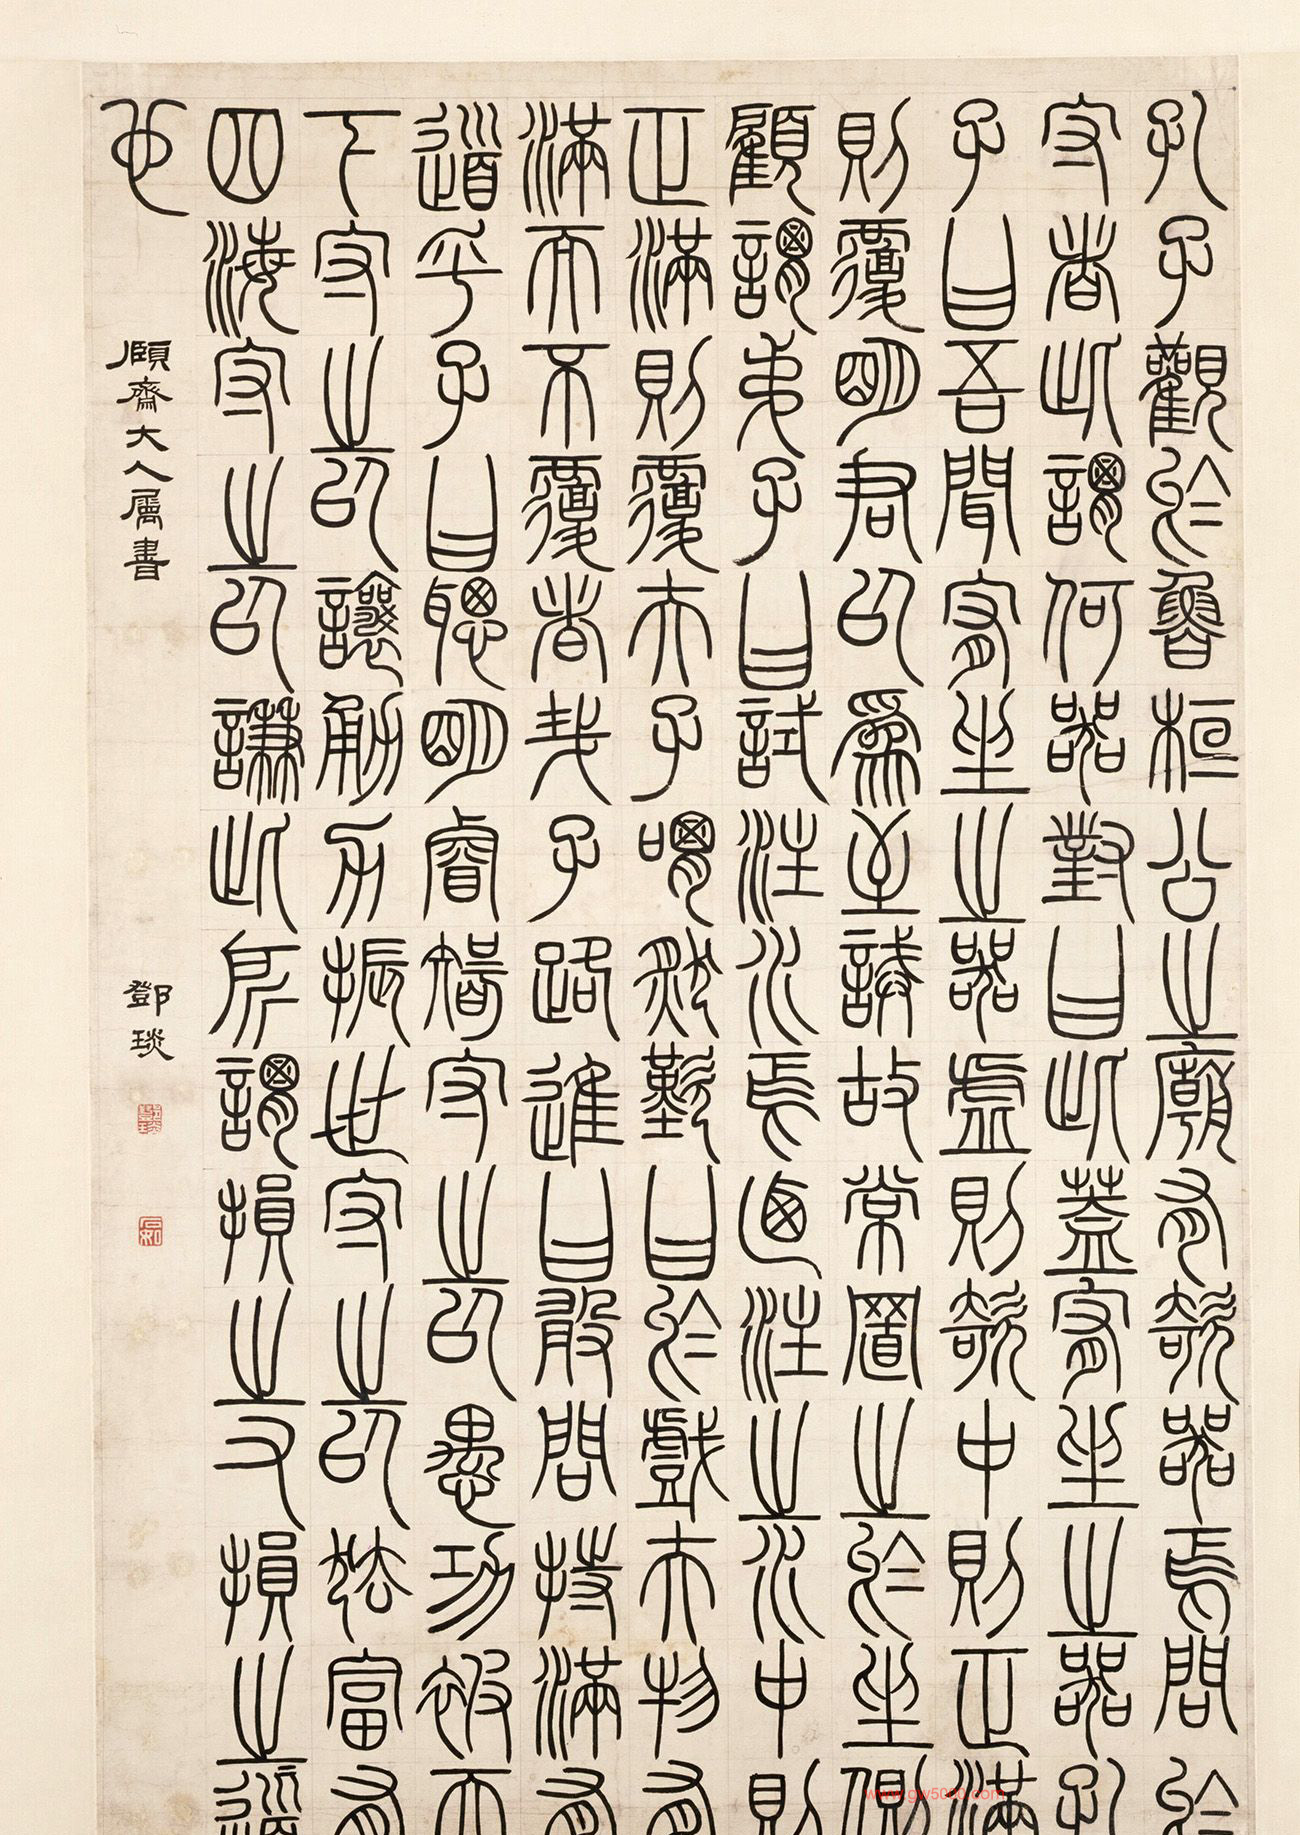 孔子觀於魯桓公之廟有欹器焉問於
守者此謂何器對曰此蓋宥坐之器孔
子曰吾聞宥坐之器虛則欹中則正滿
則覆明君以為至誡故常置之於坐側
顧謂弟子曰試注水焉迺注之水中則
正滿則覆夫子喟然歎曰於戲夫物有
滿而不覆者哉子路進曰敢問持滿有
道乎子曰聰明睿智守之以愚功被天
下守之以讓勇力振世守之以怯富有
四海守之以謙此所謂損之又損之道
也
頤齋大人屬書
鄧琰
石如